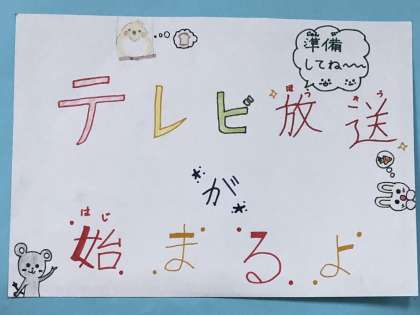 準備
してね〜〜
テレビ放送
ほう そう
が
はじ
始まるよ